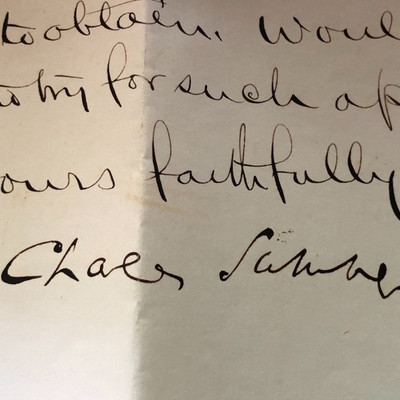 to obtain. Woul
to try for such ap
ours faithfully
Chales